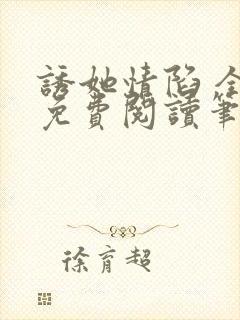 誘她情陷全
免費閱讀筆
徐育超